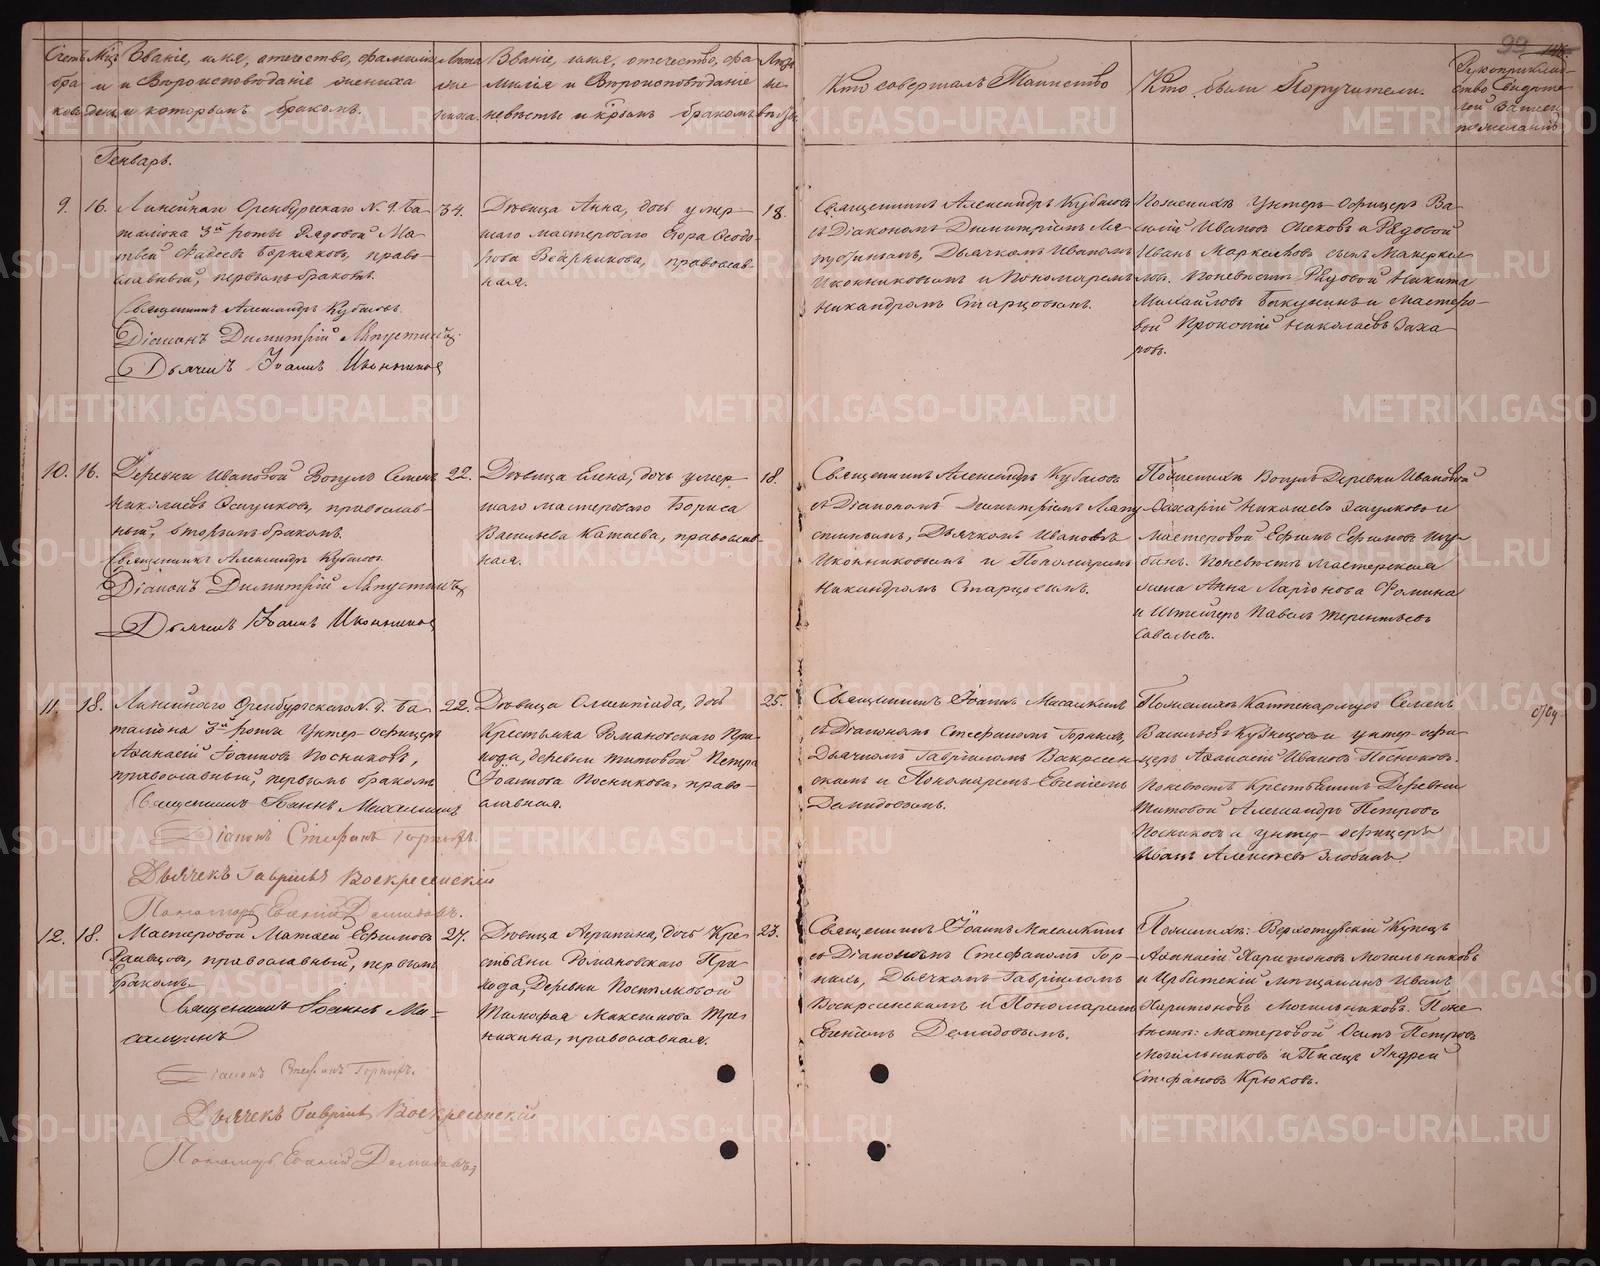 99
Счетъ бра ковъ
Мѣц и день
Званіе, имя, отечество, фамилія
и Вѣроисповѣданіе жениха
и которымъ бракомъ.
Лѣта же ниха.
Званіе, имя, отечество, фа
милія и Вѣроисповѣданіе
невѣсты и крымъ бракомъ
Лѣта не вѣсты
Кто совершалъ Таинство
Кто были Поручители.
Рукоприклад-
ство Свидѣте
лей записи
по желанію
Генварь.
9. 16.
Линейнаго Оренбургскаго N. 9. Ба-
таліона 3й роты Рядовой Ма-
твей Фадѣевъ право-
славный, первымъ бракомъ.
Священникъ Александръ Кубасовъ.
Діаконъ Димитрій Ляпустинъ.
Дьячекъ Іоаннъ Иконниковъ
34.
Дѣвица Анна, дочь умер-
шаго мастероваго Егора Ѳеодо-
рова православ-
ная.
18.
Священникъ Александръ Кубасовъ
съ Діакономъ Димитріемъ Ля-
пустинымъ, Дьячкомъ Иваномъ
Иконниковымъ и Пономаремъ
Никандромъ Старцовымъ.
По женихѣ Унтеръ-Офицеръ Ва-
силій Ивановъ и Рядовой
Иванъ Маркеловъ
По невѣстѣ Рядовой Никита
Михайловъ и Мастеро-
вой Прокопій Николаевъ Заха
ровъ.
10. 16.
Деревни Ивановой Вогулъ Семенъ
Николаевъ православ-
ный, вторымъ бракомъ.
Священникъ Александръ Кубасовъ.
Діаконъ Димитрій Ляпустинъ
Дьячекъ Іоаннъ Иконниковъ
22.
Дѣвица Елена, дочь умер-
шаго мастероваго Бориса
Васильева Катаева, православ-
ная.
18.
Священникъ Александръ Кубасовъ
съ Діакономъ Димитріемъ Ляпу
стинымъ, Дьячкомъ Иваномъ
Иконниковымъ и Пономаремъ
Никандромъ Старцовымъ.
По женихѣ Вогулъ Деревни Ивановой
Захарій Николаевъ и
Мастеровой Ефимъ Ефимовъ Шу-
бинъ. По невѣстѣ Мастерская
жена Анна Ларіонова Фомина
и Штейгеръ Павелъ Терентьевъ
Савельевъ.
11. 18.
Линейнаго Оренбургскаго N. 9. Ба-
таліона 3й роты Унтер-офицеръ
Аѳанасій Іоанновъ Посниковъ,
православный, первымъ бракомъ
Священникъ Іоаннъ Масалкинъ
Діаконъ Стефанъ Горныхъ
Дьячекъ Гавріилъ Воскресенскій
Пономарь Евгеній Демидовъ.
22.
Дѣвица Олимпіада, дочь
Крестьянка Романовскаго При-
хода, деревни Титовой Петра
Іоаннова Посникова, право-
славная.
25.
Священникъ Іоаннъ Масалкинъ
съ Діакономъ Стефаномъ Горныхъ,
Дьячкомъ Гавріиломъ Воскресен
скимъ и Пономаремъ Евгеніемъ
Демидовымъ.
По женихѣ Каптенармусъ Семенъ
Васильевъ Кузнецовъ и унтер-офи-
церъ Аѳанасій Ивановъ Посниковъ.
По невѣстѣ Крестьянинъ Деревни
Титовой Александръ Петровъ
Посниковъ и унтер-офицеръ
Иванъ Алексѣевъ Злобинъ
12. 18.
Мастеровой Матвей Ефимовъ
православный, первымъ
бракомъ.
Священникъ Іоаннъ Ма-
салкинъ
Діаконъ Стефанъ Горныхъ.
Дьячекъ Гавріилъ Воскресенскій
Пономарь Евгеній Демидовъ
27.
Дѣвица Агрипина, дочь Кре-
стьянина Романовскаго При-
хода, Деревни
Тимофѣя Максимова
православная.
23.
Священникъ Іоаннъ Масалкинъ
съ Діакономъ Стефаномъ Гор-
ныхъ, Дьячкомъ Гавріиломъ
Воскресенскимъ и Пономаремъ
Евгеніемъ Демидовымъ.
По женихѣ: Верхотурскій Купецъ
Аѳанасій Харитоновъ Могильниковъ
и Ирбитскій мѣщанинъ Иванъ
Харитоновъ Могильниковъ. По не-
вѣстѣ: Мастеровой Осипъ Петровъ
Могильниковъ и Писецъ Андрей
Стефановъ Крюковъ.
METRIKI.GASO-URAL.RU